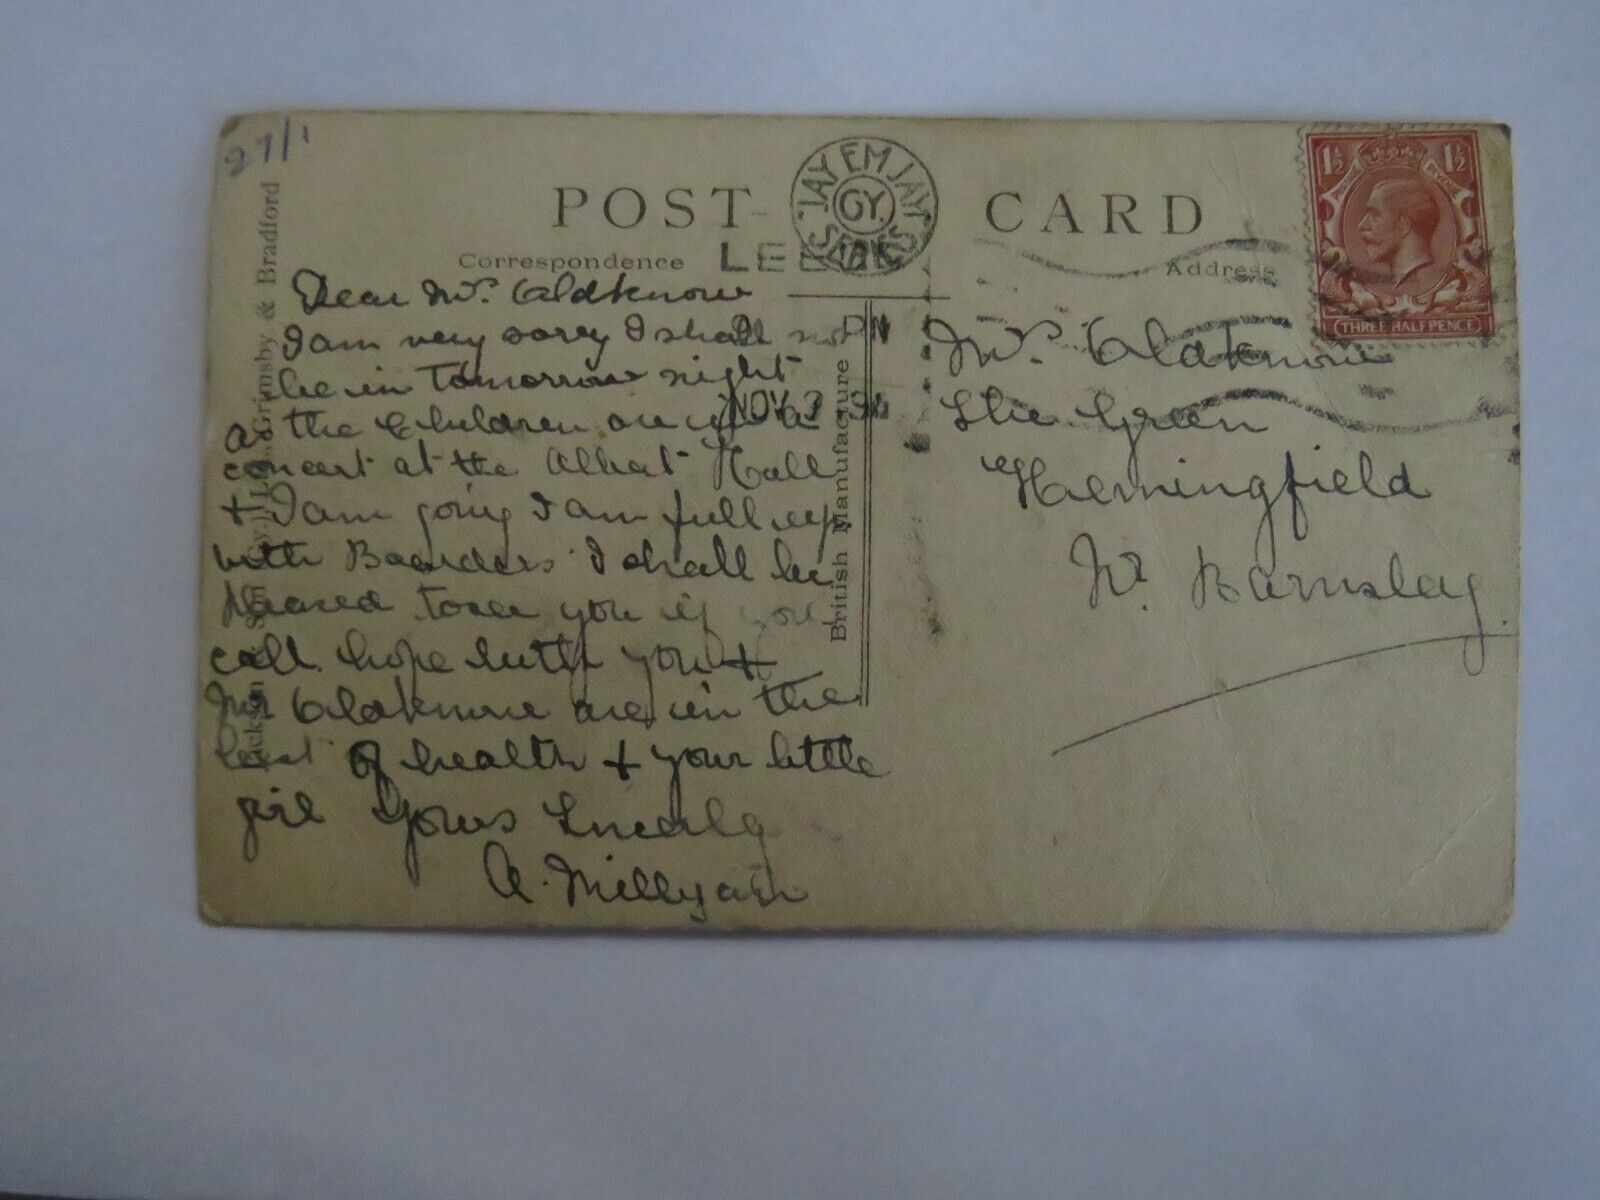 27/1
POST CARD
JAY EM JAY
GY.
SERIES
Correspondence
Address
LEEDS
PM
NOV 3
1½ 1½
POSTAGE REVENUE
THREE HALFPENCE
Jackson & Son, Gy., Ltd., Grimsby & Bradford
British Manufacture
Dear Mrs. Oldknow
I am very sorry I shall not
be in tomorrow night
as the Children are in a
concert at the Albert Hall
+ I am going I am full up
with Boarders I shall be
pleased to see you if you
call. hope both you +
Mr Oldknow are in the
best of health + your little
girl Yours Sincerly
A.
Mrs. Oldknow
The Green
Hemingfield
Nr. Barnsley.